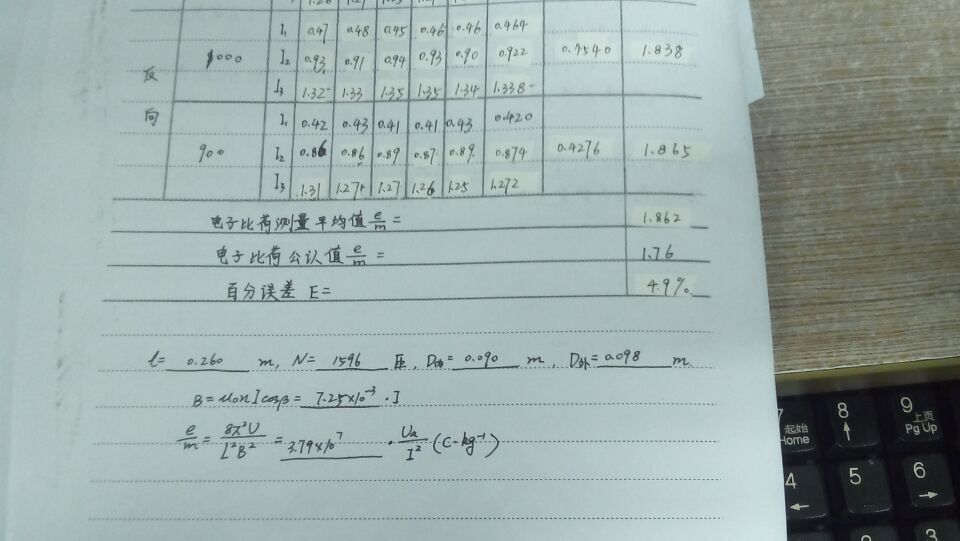 I₁ 0.47 0.48 0.45 0.46 0.46 0.464
1000 I₂ 0.93 0.91 0.94 0.93 0.90 0.922 0.4540 1.838
反 I₃ 1.32 1.33 1.35 1.35 1.34 1.338
向 I₁ 0.42 0.43 0.41 0.41 0.43 0.420
900 I₂ 0.86 0.86 0.89 0.87 0.89 0.874 0.4276 1.865
I₃ 1.31 1.27 1.27 1.26 1.25 1.272
电子比荷测量平均值 e/m = 1.862
电子比荷公认值 e/m = 1.76
百分误差 E= 4.9%
l= 0.260 m, N= 1596 匝, D内= 0.090 m, D外= 0.098 m
B=μ₀nIcosβ= 7.25×10⁻³ ·I
e/m = 8π²U/l²B² = 3.79×10⁷ · Ua/I² (C·kg⁻¹)
7 起始 Home
8 ↑
9 上页 Pg Up
4 ←
5
6 →
3